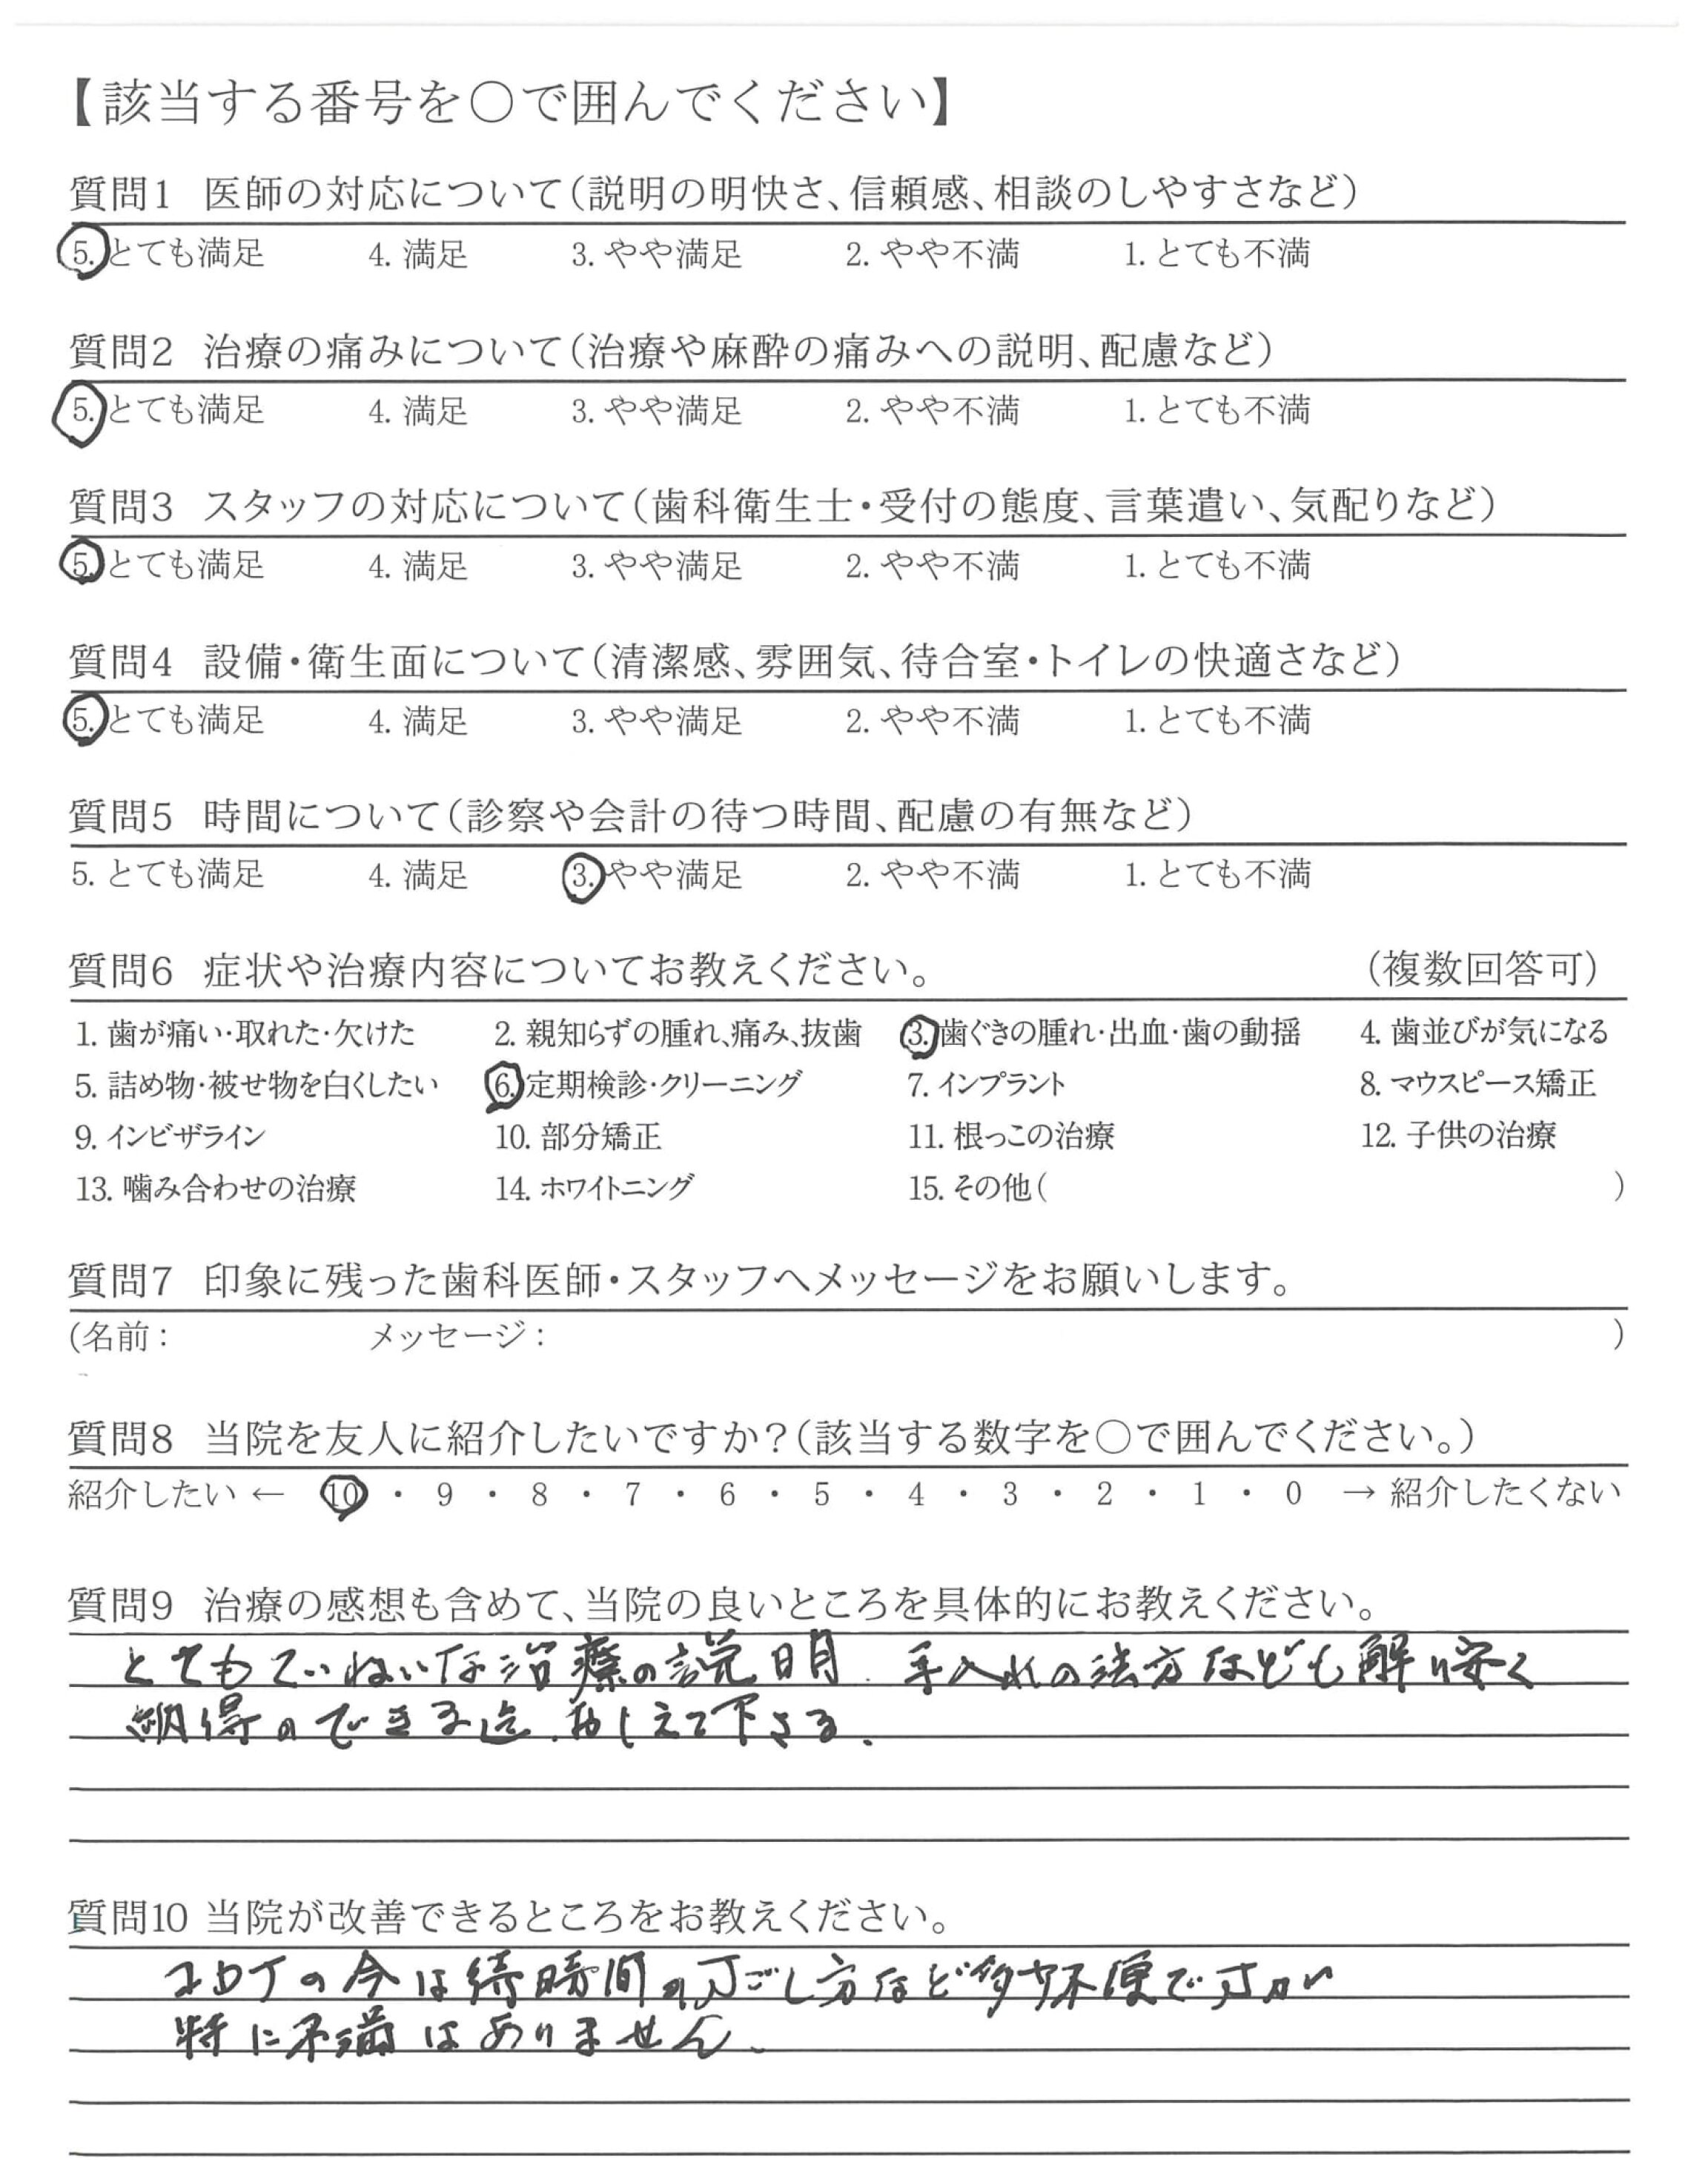 【該当する番号を○で囲んでください】
質問1 医師の対応について(説明の明快さ、信頼感、相談のしやすさなど)
5. とても満足 4. 満足 3. やや満足 2. やや不満 1. とても不満
質問2 治療の痛みについて(治療や麻酔の痛みへの説明、配慮など)
5. とても満足 4. 満足 3. やや満足 2. やや不満 1. とても不満
質問3 スタッフの対応について(歯科衛生士・受付の態度、言葉遣い、気配りなど)
5. とても満足 4. 満足 3. やや満足 2. やや不満 1. とても不満
質問4 設備・衛生面について(清潔感、雰囲気、待合室・トイレの快適さなど)
5. とても満足 4. 満足 3. やや満足 2. やや不満 1. とても不満
質問5 時間について(診察や会計の待つ時間、配慮の有無など)
5. とても満足 4. 満足 3. やや満足 2. やや不満 1. とても不満
質問6 症状や治療内容についてお教えください。 (複数回答可)
1. 歯が痛い・取れた・欠けた 2. 親知らずの腫れ、痛み、抜歯 3. 歯ぐきの腫れ・出血・歯の動揺 4. 歯並びが気になる
5. 詰め物・被せ物を白くしたい 6. 定期検診・クリーニング 7. インプラント 8. マウスピース矯正
9. インビザライン 10. 部分矯正 11. 根っこの治療 12. 子供の治療
13. 噛み合わせの治療 14. ホワイトニング 15. その他( )
質問7 印象に残った歯科医師・スタッフへメッセージをお願いします。
(名前: メッセージ: )
質問8 当院を友人に紹介したいですか?(該当する数字を○で囲んでください。)
紹介したい ← 10 ・ 9 ・ 8 ・ 7 ・ 6 ・ 5 ・ 4 ・ 3 ・ 2 ・ 1 ・ 0 → 紹介したくない
質問9 治療の感想も含めて、当院の良いところを具体的にお教えください。
とてもていねいな治療の説明. 手入れの法方なども解り安く
納得のできる迄.おしえて下さる.
質問10 当院が改善できるところをお教えください。
コロナの今は待時間のすごし方など多少不便ですが
特に不満はありません.